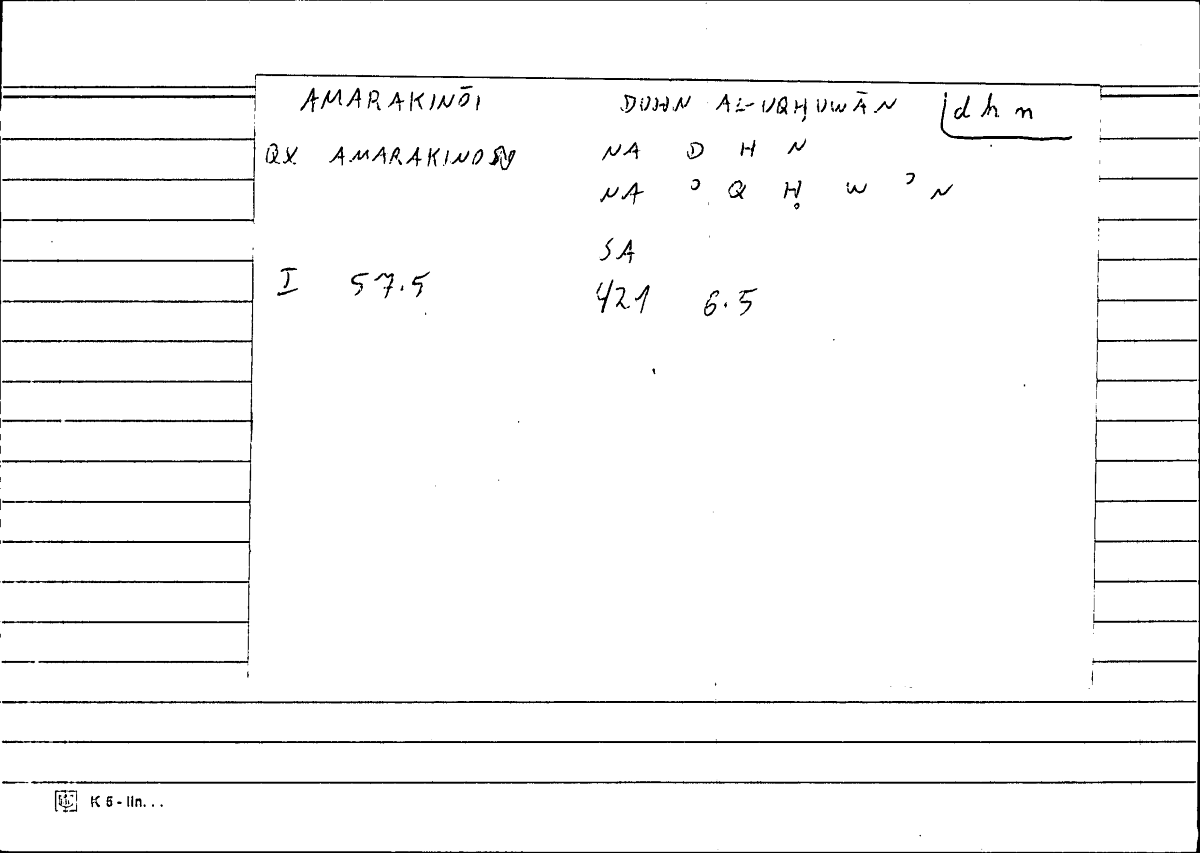 AMARAKINŌI DUHN AL-UQḤUWĀN dhn
QX AMARAKINOS NA D H N
NA ʾ Q Ḥ W ʾ N
SA
I 57.5 421 6.5
K 5 - lin...